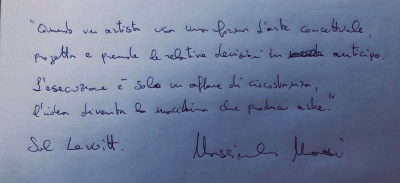 "Quando un artista usa una forma d'arte concettuale,
progetta e prende le relative decisioni in anticipo.
L'esecuzione è solo un affare di circostanza,
l'idea diventa la macchina che produce arte."
Sol Lewitt.